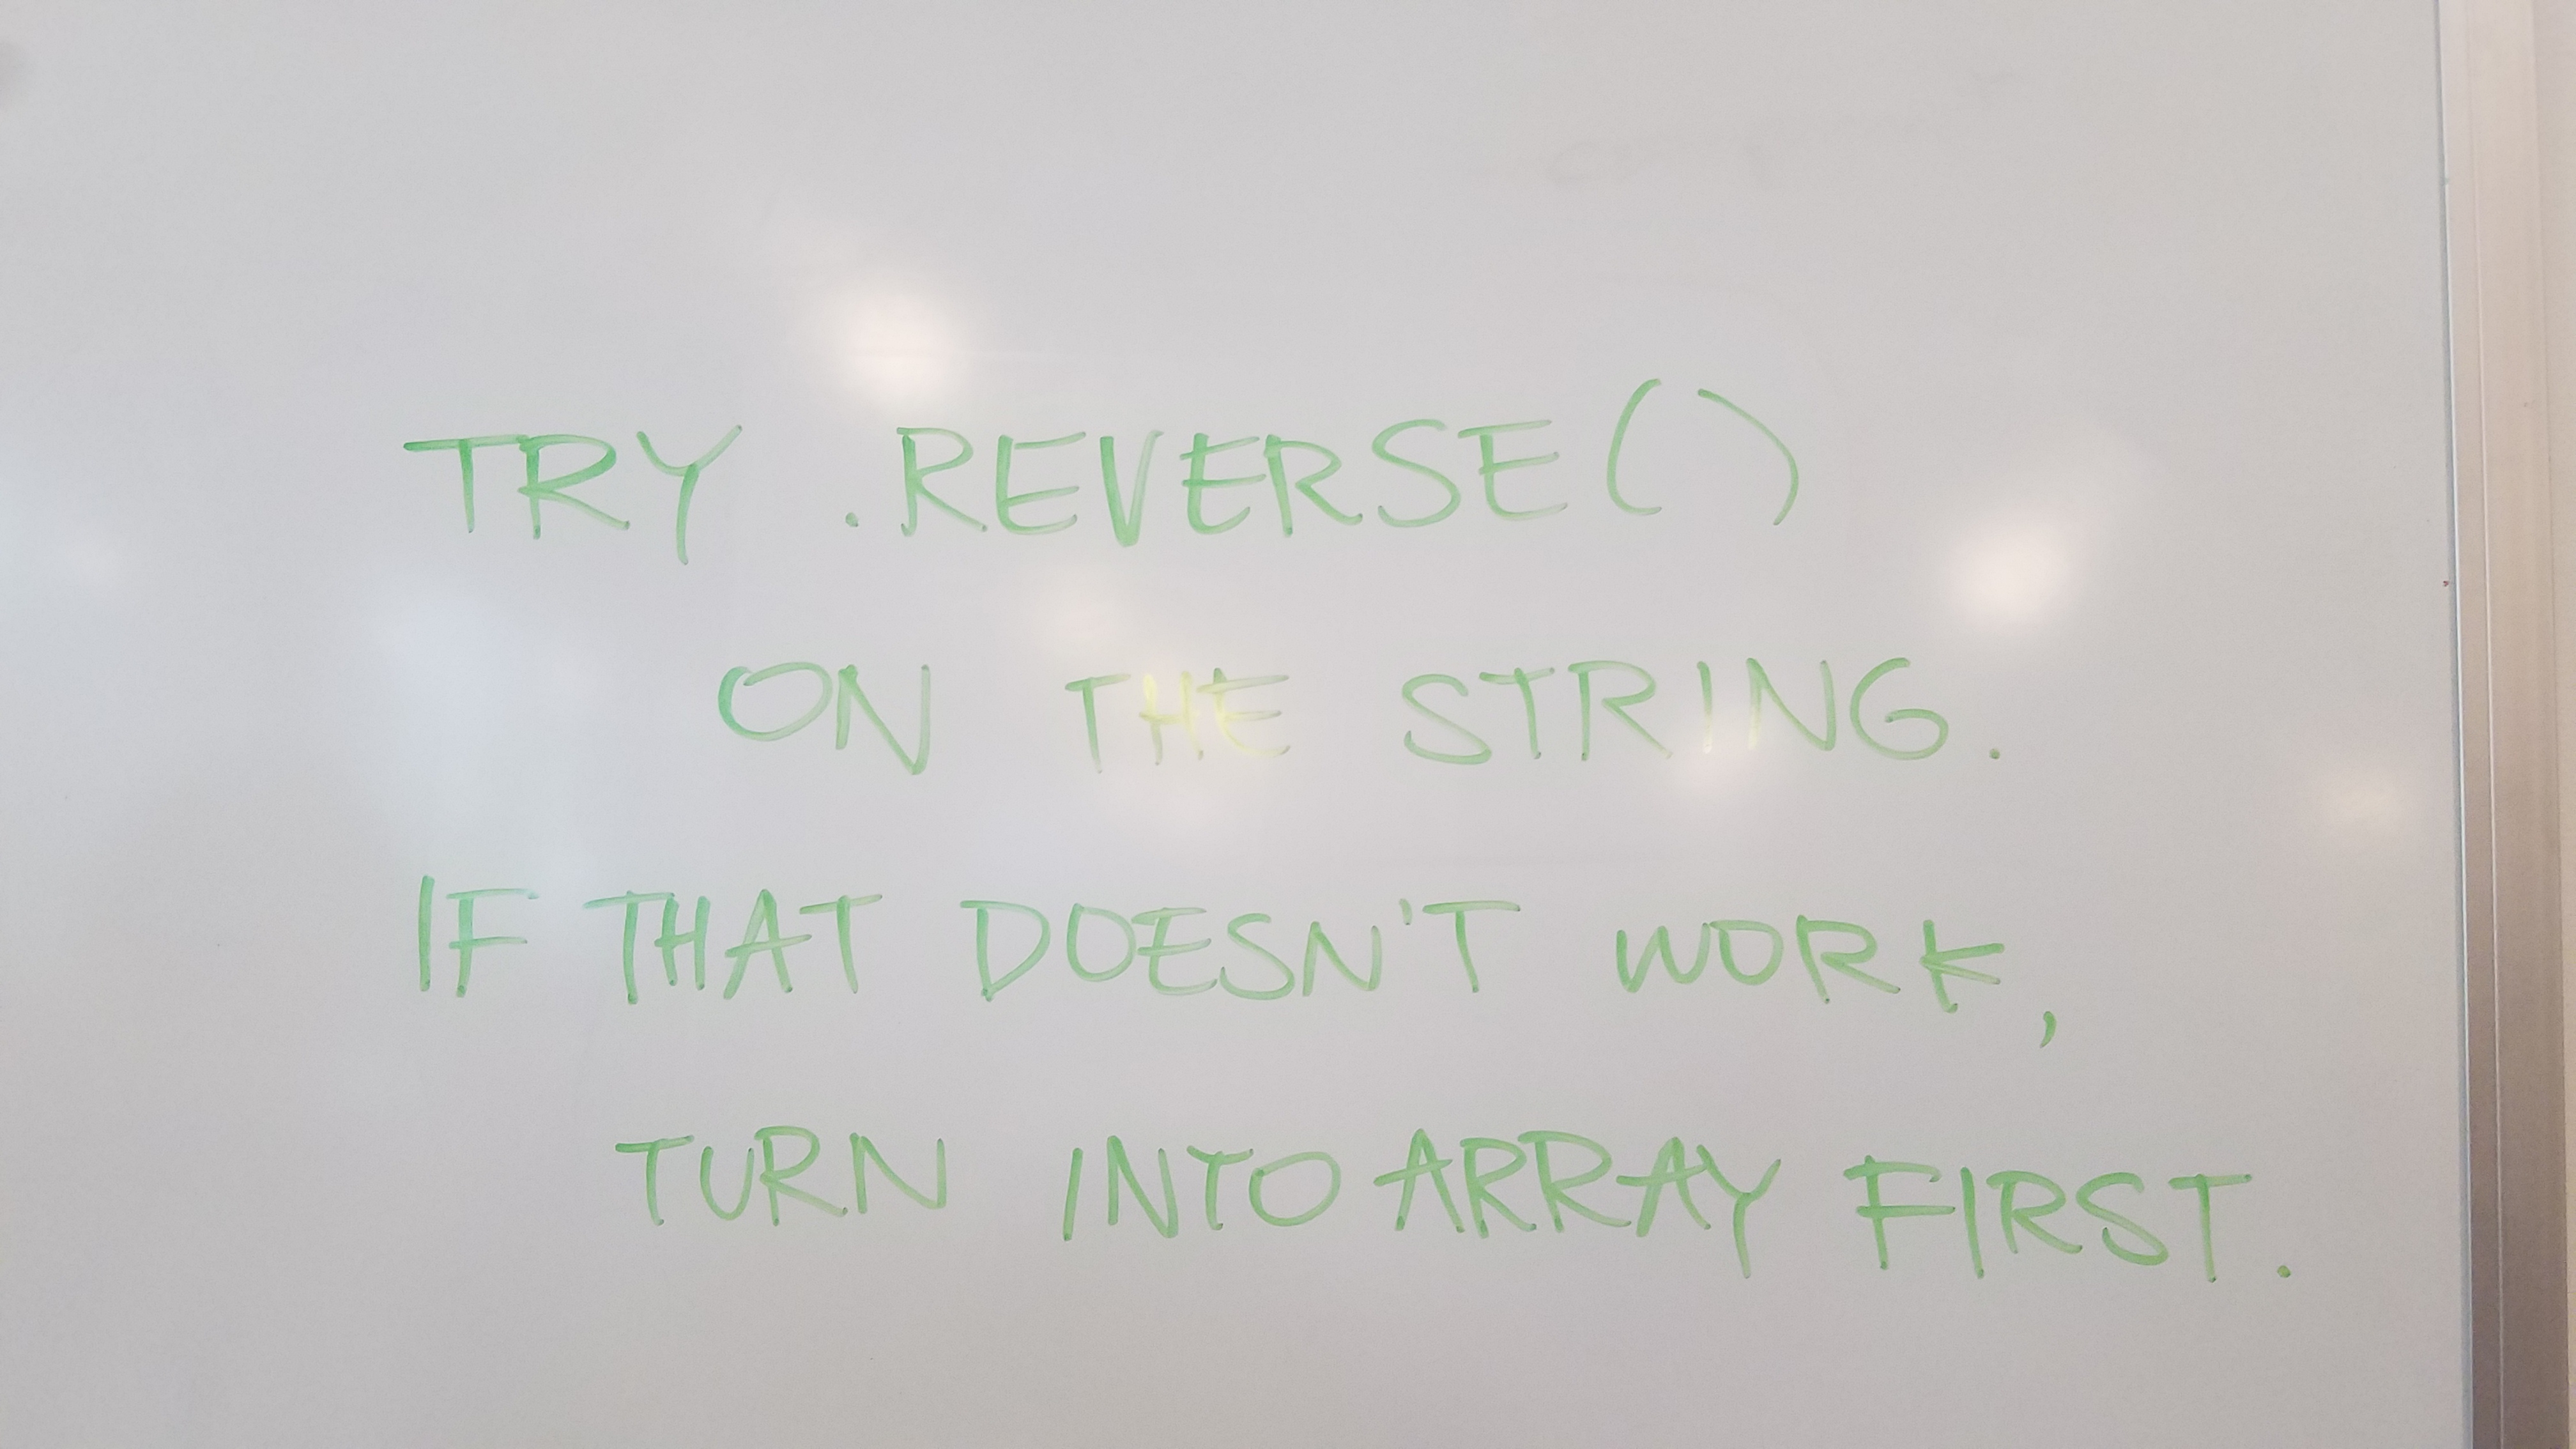 TRY .REVERSE()
ON THE STRING.
IF THAT DOESN'T WORK,
TURN INTO ARRAY FIRST.